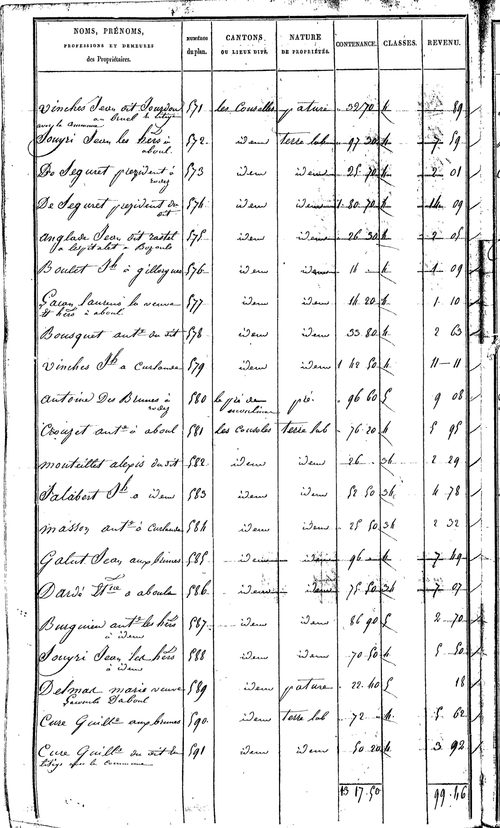 NOMS, PRÉNOMS,
PROFESSIONS ET DEMEURES
des Propriétaires.
NUMÉROS
du plan.
CANTONS
OU LIEUX DITS.
NATURE
DE PROPRIÉTÉS.
CONTENANCE.
CLASSES.
REVENU.
Vinches Jean dit Jourdon 571 les Couselles pature 32 70 4 89
Jouyri Jean les hérs à 572 idem terre lab 97 30 4 7 59
aboul
De Seguret prezident à 573 idem idem 25 70 4 2 01
rodez
De Seguret prezident du 574 idem idem 1 80 70 4 14 09
dit
anglade Jean dit rastel 575 idem idem 26 30 4 2 05
Boulet Jh à gillorgues 576 idem idem 14 4 1 09
Gacon laurens la veuve 577 idem idem 14 20 4 1 10
et hérs à aboul
Bousquet ante du dit 578 idem idem 33 80 4 2 63
Vinches Jh a Curlande 579 idem idem 1 42 50 4 11 11
antoine Des Brunes à 580 le pré de pré 96 60 5 9 08
rodez
Crouzet ante à aboul 581 les Couseles terre lab 76 20 4 5 95
monteillet alexis du dit 582 idem idem 26 34 2 29
Salabert Jh à idem 583 idem idem 52 50 34 4 78
masson ante à Curlande 584 idem idem 25 50 34 2 32
Galut Jean aux brunes 585 idem idem 96 4 7 49
Dardé Etne a aboule 586 idem idem 75 50 34 7 07
Burguieu ante les hérs 587 idem idem 86 90 5 2 70
à idem
Jouyri Jean les hérs 588 idem idem 70 50 4 5 50
à idem
Delmas marie veuve 589 idem pature 22 40 5 18
Daboul
Cure Guille aux brunes 590 idem terre lab 72 4 5 62
Cure Guille du dit 591 idem idem 50 20 4 3 92
13 17 50 99 46